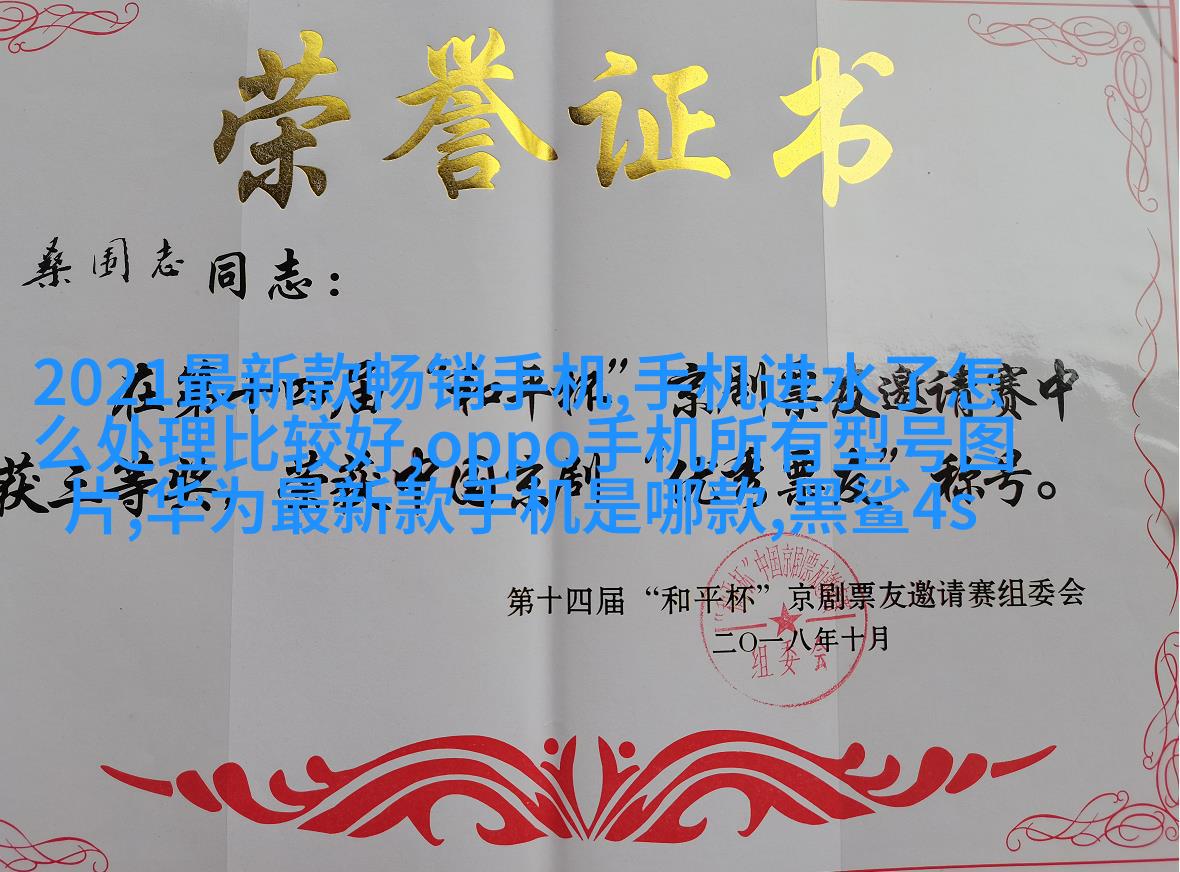 荣誉证书
桑国志同志：
在第十四届“和平杯”京剧票友邀请赛中
获三等奖，荣获中国京剧“优秀票友”称号。
2021最新款畅销手机,手机进水了怎
么处理比较好,oppo手机所有型号图
片,华为最新款手机是哪款,黑鲨4s
第十四届“和平杯”京剧票友邀请赛组委会
二〇一八年十月
中国京剧票友邀请赛
组委会